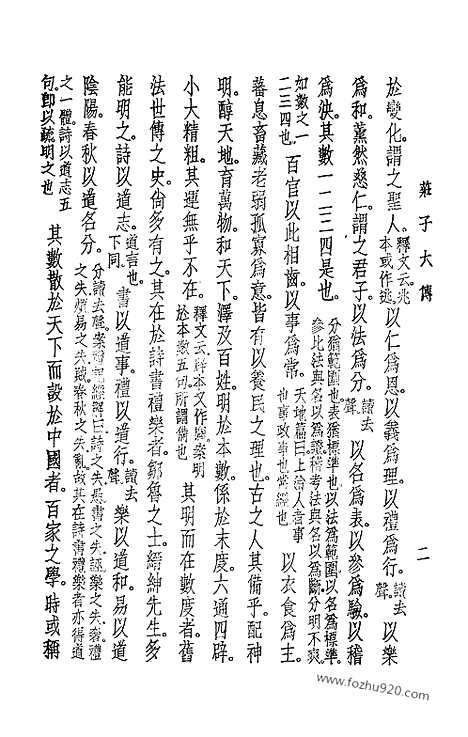 莊子大傳
二
於變化。謂之聖人。釋文云兆本或作逃以仁爲恩。以義爲理。以禮爲行。讀去聲以樂
爲和。薰然慈仁。謂之君子。以法爲分。讀去聲以名爲表。以參爲驗。以稽
爲決。其數一二三四是也。分猶範圍也表猶標準也以法爲範圍以名爲標準參比法與名以爲證稽考法與名以爲斷分明不爽
如數之一二三四也百官以此相齒。以事爲常。天地篇曰上治人者事也事政事也常經也以衣食爲主。
蕃息畜藏老弱孤寡爲意。皆有以養民之理也。古之人其備乎。配神
明。醇天地。育萬物。和天下。澤及百姓。明於本數。係於末度。六通四辟。
小大精粗。其運無乎不在。釋文云辟本又作闢案明於本數五句所謂備也其明而在數度者。舊
法世傳之史。尙多有之。其在於詩書禮樂者。鄒魯之士。縉紳先生。多
能明之。詩以道志。道言也下同書以道事。禮以道行。讀去聲樂以道和。易以道
陰陽。春秋以道名分。分讀去聲案禮記經解曰詩之失愚書之失誣樂之失奢禮之失煩易之失賊春秋之失亂故其在詩書禮樂者亦得道
之一體詩以道志五句卽以疏明之也其數散於天下而設於中國者。百家之學。時或稱
www.fozhu920.com